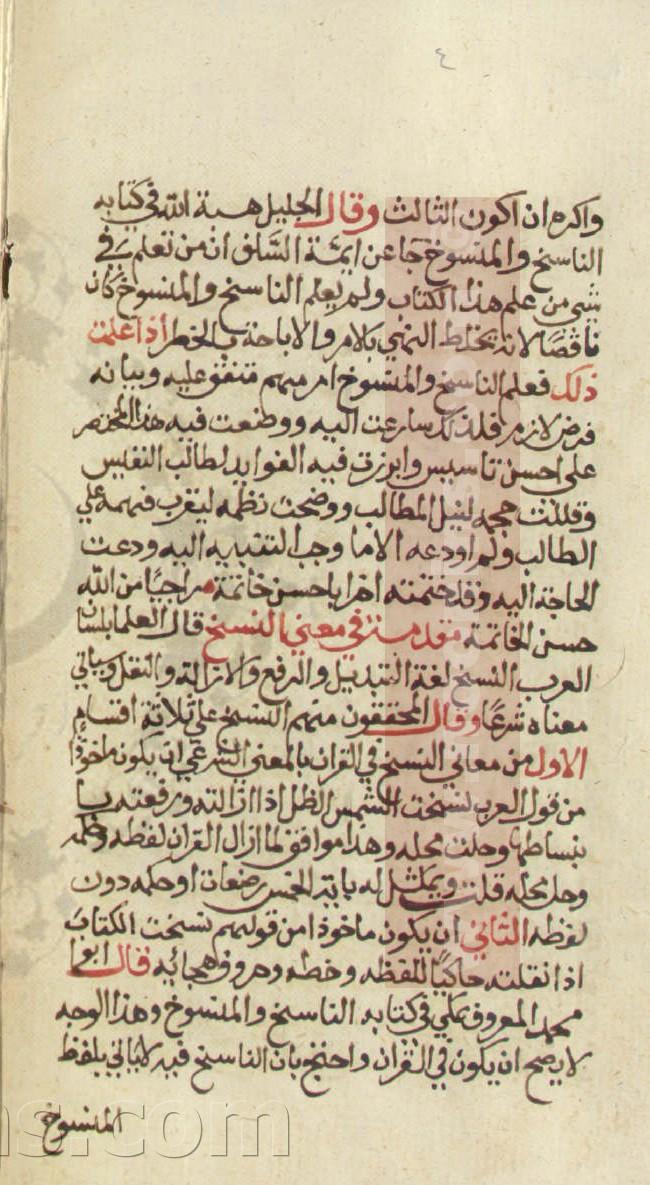 ٤
واكره ان اكون الثالث وقال الجليل هبة الله في كتابه
الناسخ والمنسوخ جا عن ايمة السلف ان من تعلم في
شي من علم هذا الكتاب ولم يعلم الناسخ والمنسوخ كان
ناقصا لانه يخلط النهي بالامر والاباحة بالخطر اذا علمت
ذلك فعلم الناسخ والمنسوخ امر مهم متفق عليه وبيانه
فرض لازم فلذلك سارعت اليه ووضعت فيه هذا المختصر
على احسن تاسيس وابرزت فيه الفوايد لطالب النفيس
وقللت حجمه لنيل المطالب ووضحت نظمه ليقرب فهمه علي
الطالب ولم اودعه الا ما وجب التنبيه اليه ودعت
الحاجة اليه وقد ختمته اخرا باحسن خاتمة مراجيا من الله
حسن الخاتمة مقدمة في معني النسخ قال العلما بلسان
العرب النسخ لغة التبديل والرفع والازالة والنقل وسياتي
معناه شرعا وقال المحققون منهم النسخ علي ثلاثة اقسام
الاول من معاني النسخ في القران بالمعني الشرعي ان يكون ماخوذا
من قول العرب نسخت الشمس الظل اذا ازالته ورفعته با
نبساطها وحلت محله وهذا موافق لما ازال القران لفظه وحكمه
وحل محله قلت ويمثل له باية الخمس رضعات او حكمه دون
لفظه الثاني ان يكون ماخوذا من قولهم نسخت الكتاب
اذا نقلته حاكيا للفظه وخطه وحروف هجائه قال ابوا
محمد المعروف بمكي في كتابه الناسخ والمنسوخ وهذا الوجه
لا يصح ان يكون في القران واحتج بان الناسخ فيه لا ياتي بلفظ
المنسوخ
ns.com